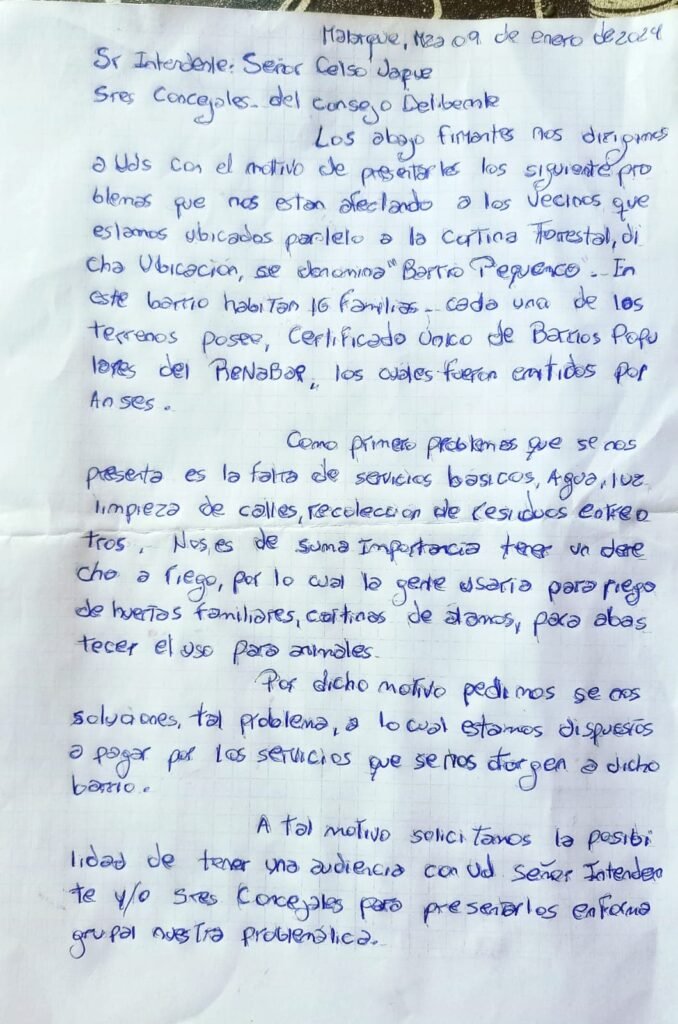 Malargue, Mza 09 de enero de 2024
Sr Intendente: Señor Celso Jaque
Sres Concejales. del Consejo Deliberante
Los abajo firmantes nos dirigimos
a Uds con el motivo de presentarles los siguiente pro
blemas que nos estan afectando a los Vecinos que
estamos ubicados parlelo a la Cortina Forrestal, di
cha Ubicación, se denomina "Barrio Pequenco". In
este barrio habitan 16 familias - cada una de los
terrenos posee, Certificado Único de Barrios Popu
lares del ReNaBap, los cuales fueron emitidos por
Anses.
Como primero problemas que se nos
presenta es la falta de servicios básicos, Agua, luz
limpieza de calles, recolección de residuos entre o
tros. Nos es de suma Importancia tener un dere
cho a riego, por lo cual la gente usaria para riego
de huertas familiares, cortinas de álamos, para abas
tecer el uso para animales.
Por dicho motivo pedimos se nos
soluciones, tal problema, a lo cual estamos dispuestos
a pagar por los servicios que se nos otorgen a dicho
barrio.
A tal motivo solicitamos la posibi
lidad de tener una audiencia con Ud Señor Intenden
te y/o Sres Concejales para presentarlos en forma
grupal nuestra problemática.